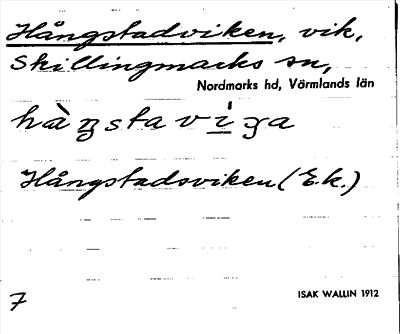 Hångstadviken, vik,
Skillingmarks sn,
Nordmarks hd, Värmlands län
Hångstadsviken (E.k.)
7
ISAK WALLIN 1912